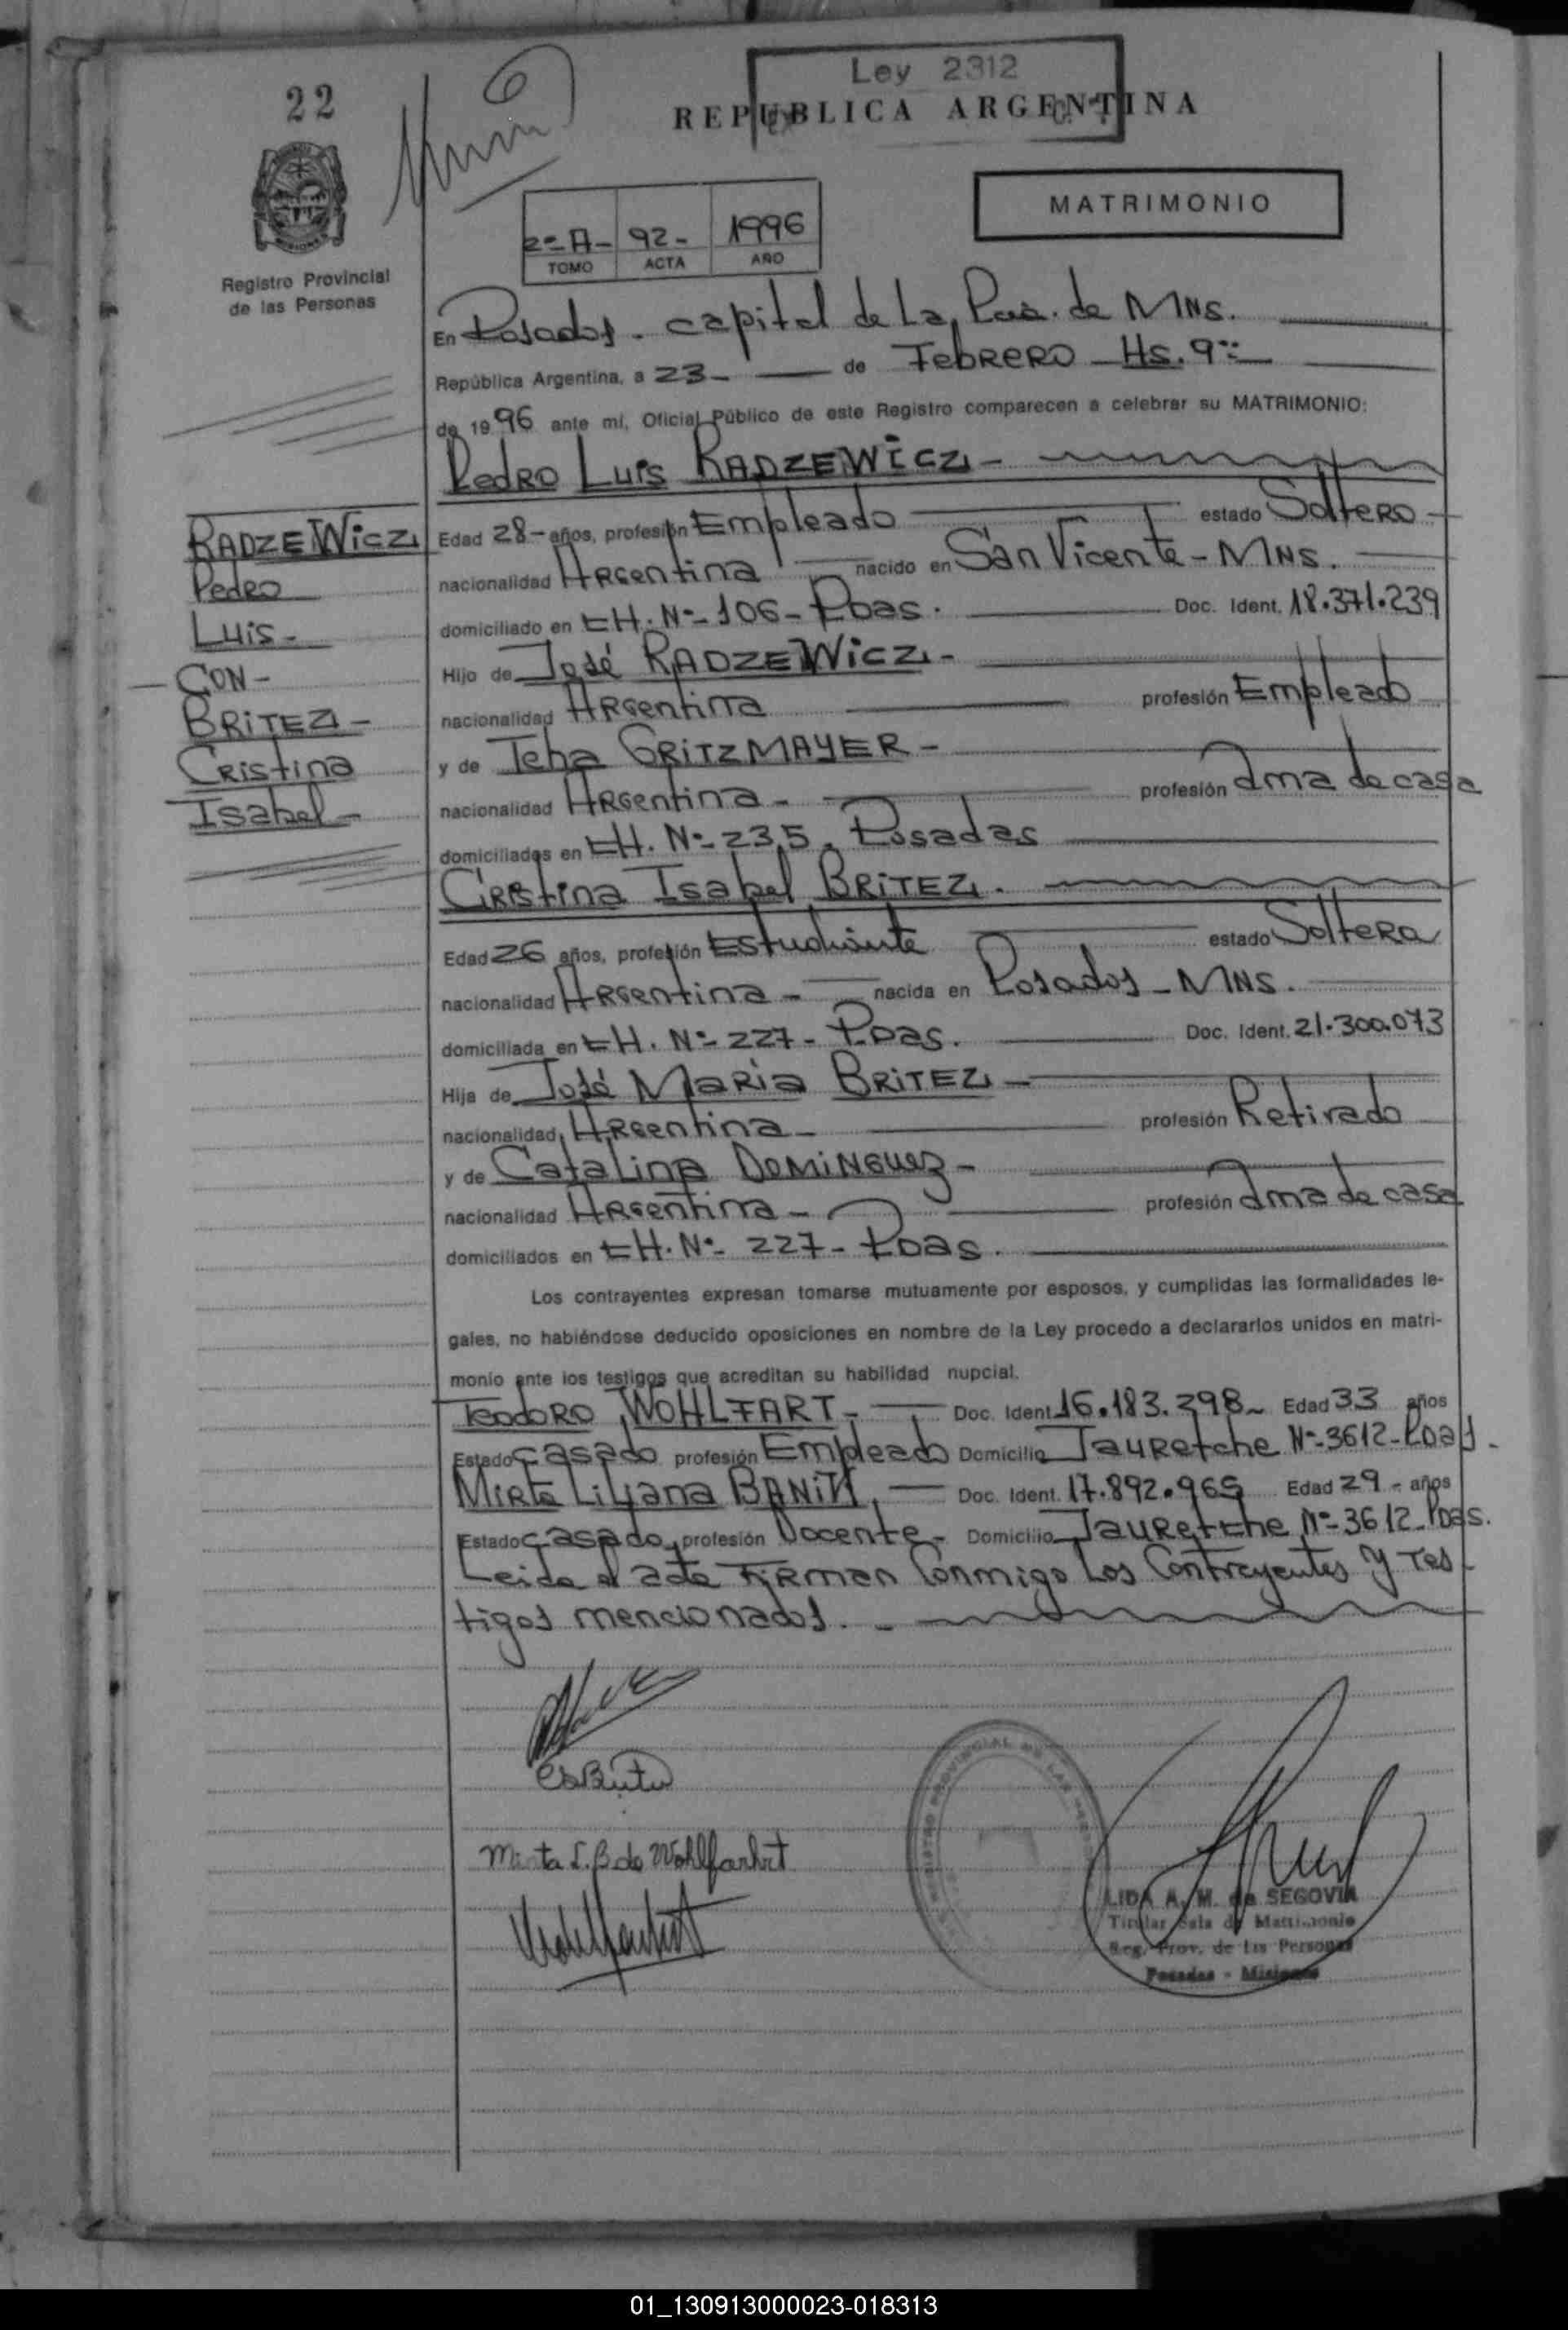 22
Ley 2312
REPUBLICA ARGENTINA
MATRIMONIO
2º A- 92- 1996
TOMO ACTA AÑO
Registro Provincial
de las Personas
En Posadas. capital de La Pcia. de MNS.
República Argentina, a 23- de FebRERO Hs. 9
de 1996 ante mí, Oficial Público de este Registro comparecen a celebrar su MATRIMONIO:
Pedro Luis RADZEWICZ-
RADZEWICZ
Pedro
Luis-
CON-
BRITEZ-
Cristina
Isabel-
Edad 28- años, profesión Empleado estado Soltero
nacionalidad Argentina nacido en San Vicente - MNS.
domiciliado en CH. Nº- 106- Pdas. Doc. Ident. 18.371.239
Hijo de José RADZEWICZ-
nacionalidad Argentina profesión Empleado
y de GRITZMAYER-
nacionalidad Argentina- profesión Ama de casa
domiciliados en CH. Nº- 235. Posadas
Cristina Isabel BRITEZ.
Edad 26 años, profesión Estudiante estado Soltera
nacionalidad Argentina- nacida en Posadas - MNS.
domiciliada en CH. Nº- 227- Pdas. Doc. Ident. 21.300.073
Hija de José María BRITEZ-
nacionalidad Argentina- profesión Retirado
y de Catalina DOMINGUEZ-
nacionalidad Argentina- profesión Ama de casa
domiciliados en CH. Nº- 227- Pdas.
Los contrayentes expresan tomarse mutuamente por esposos, y cumplidas las formalidades le-
gales, no habiéndose deducido oposiciones en nombre de la Ley procedo a declararlos unidos en matri-
monio ante los testigos que acreditan su habilidad nupcial.
Teodoro WOHLFART- Doc. Ident 16.183.298- Edad 33 años
Estado casado profesión Empleado Domicilio Jauretche Nº-3612-Pdas.
Mirta Liliana Doc. Ident. 17.892.969 Edad 29- años
Estado casado, profesión Docente- Domicilio Jauretche Nº-3612-Pdas.
Leida el acta firman Conmigo Los Contrayentes y Tes-
tigos mencionados.-
Mirta L. B. de Wohlfarhrt
LIDA A. M. de SEGOVIA
Titular Sala de Matrimonio
Reg. Prov. de las Personas
Posadas - Misiones
01_130913000023-018313